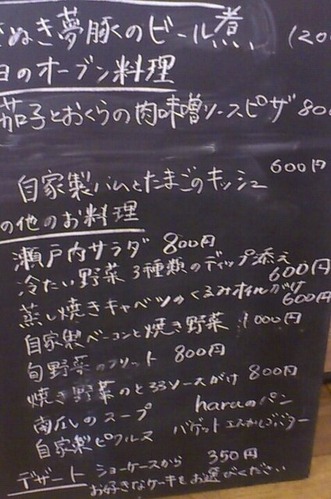 ぬき夢豚のビール煮 (20
日のオーブン料理
茄子とおくらの肉味噌ソースピザ 80
自家製ハムとたまごのキッシュ 600円
の他のお料理
瀬戸内サラダ 800円
冷たい野菜3種類のディップ添え 600円
蒸し焼きキャベツのくるみオイルがけ 600円
自家製ベーコンと焼き野菜 1000円
旬野菜のフリット 800円
焼き野菜のとろろソースがけ 800円
のスープ haraのパン
自家製ピクルス バゲット エスカルゴバター
デザート ショーケースから 350円
お好きなケーキをお選びください